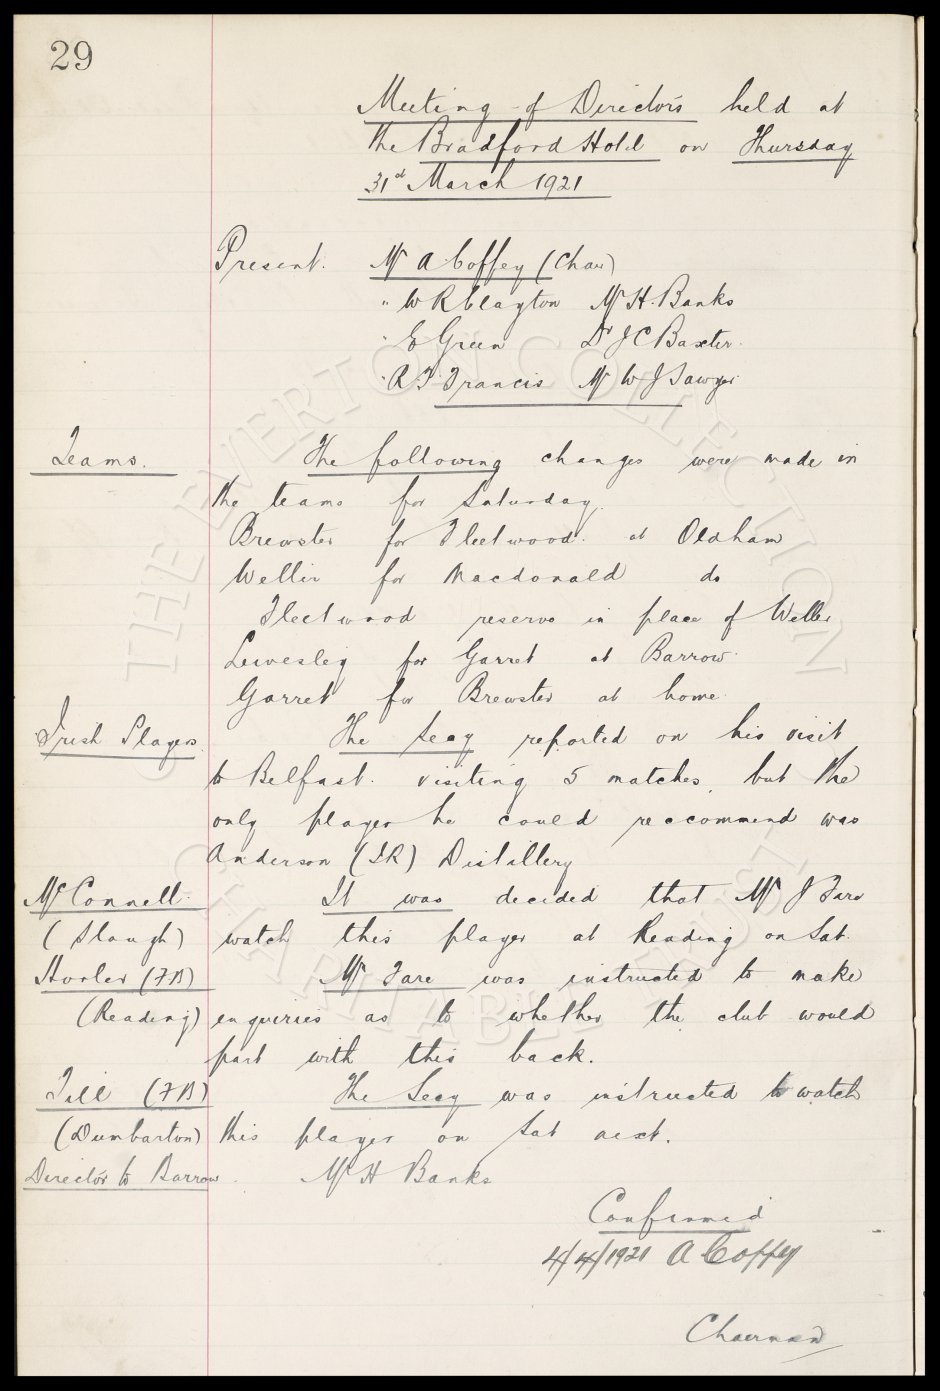 29
Meeting of Directors held at
the Bradford Hotel on Thursday
31st March 1921
Present. Mr A Coffey (Chair)
" W R Clayton Mr H. Banks
" E Green Dr J C Baxter.
" R T Francis Mr W J Sawyer
Teams. The following changes were made in
the teams for Saturday.
Brewster for Fleetwood. at Oldham
Weller for Macdonald do
Fleetwood reserve in place of Weller
Lievesley for Garret at Barrow.
Garret for Brewster at home.
Irish Players. The Secy reported on his visit
to Belfast. visiting 5 matches, but the
only player he could reccommend was
Anderson (IR) Distillery
McConnell. It was decided that Mr J Fare
(Slough) watch this player at Reading on Sat.
Horler (FB) Mr Fare was instructed to make
(Reading) enquiries as to whether the club would
part with this back.
Till (FB) The Secy was instructed to watch
(Dumbarton) this player on Sat next.
Director to Barrow. Mr H Banks
Confirmed
4/4/1921 A Coffey
Chairman
THE EVERTON COLLECTION
CHARITABLE TRUST